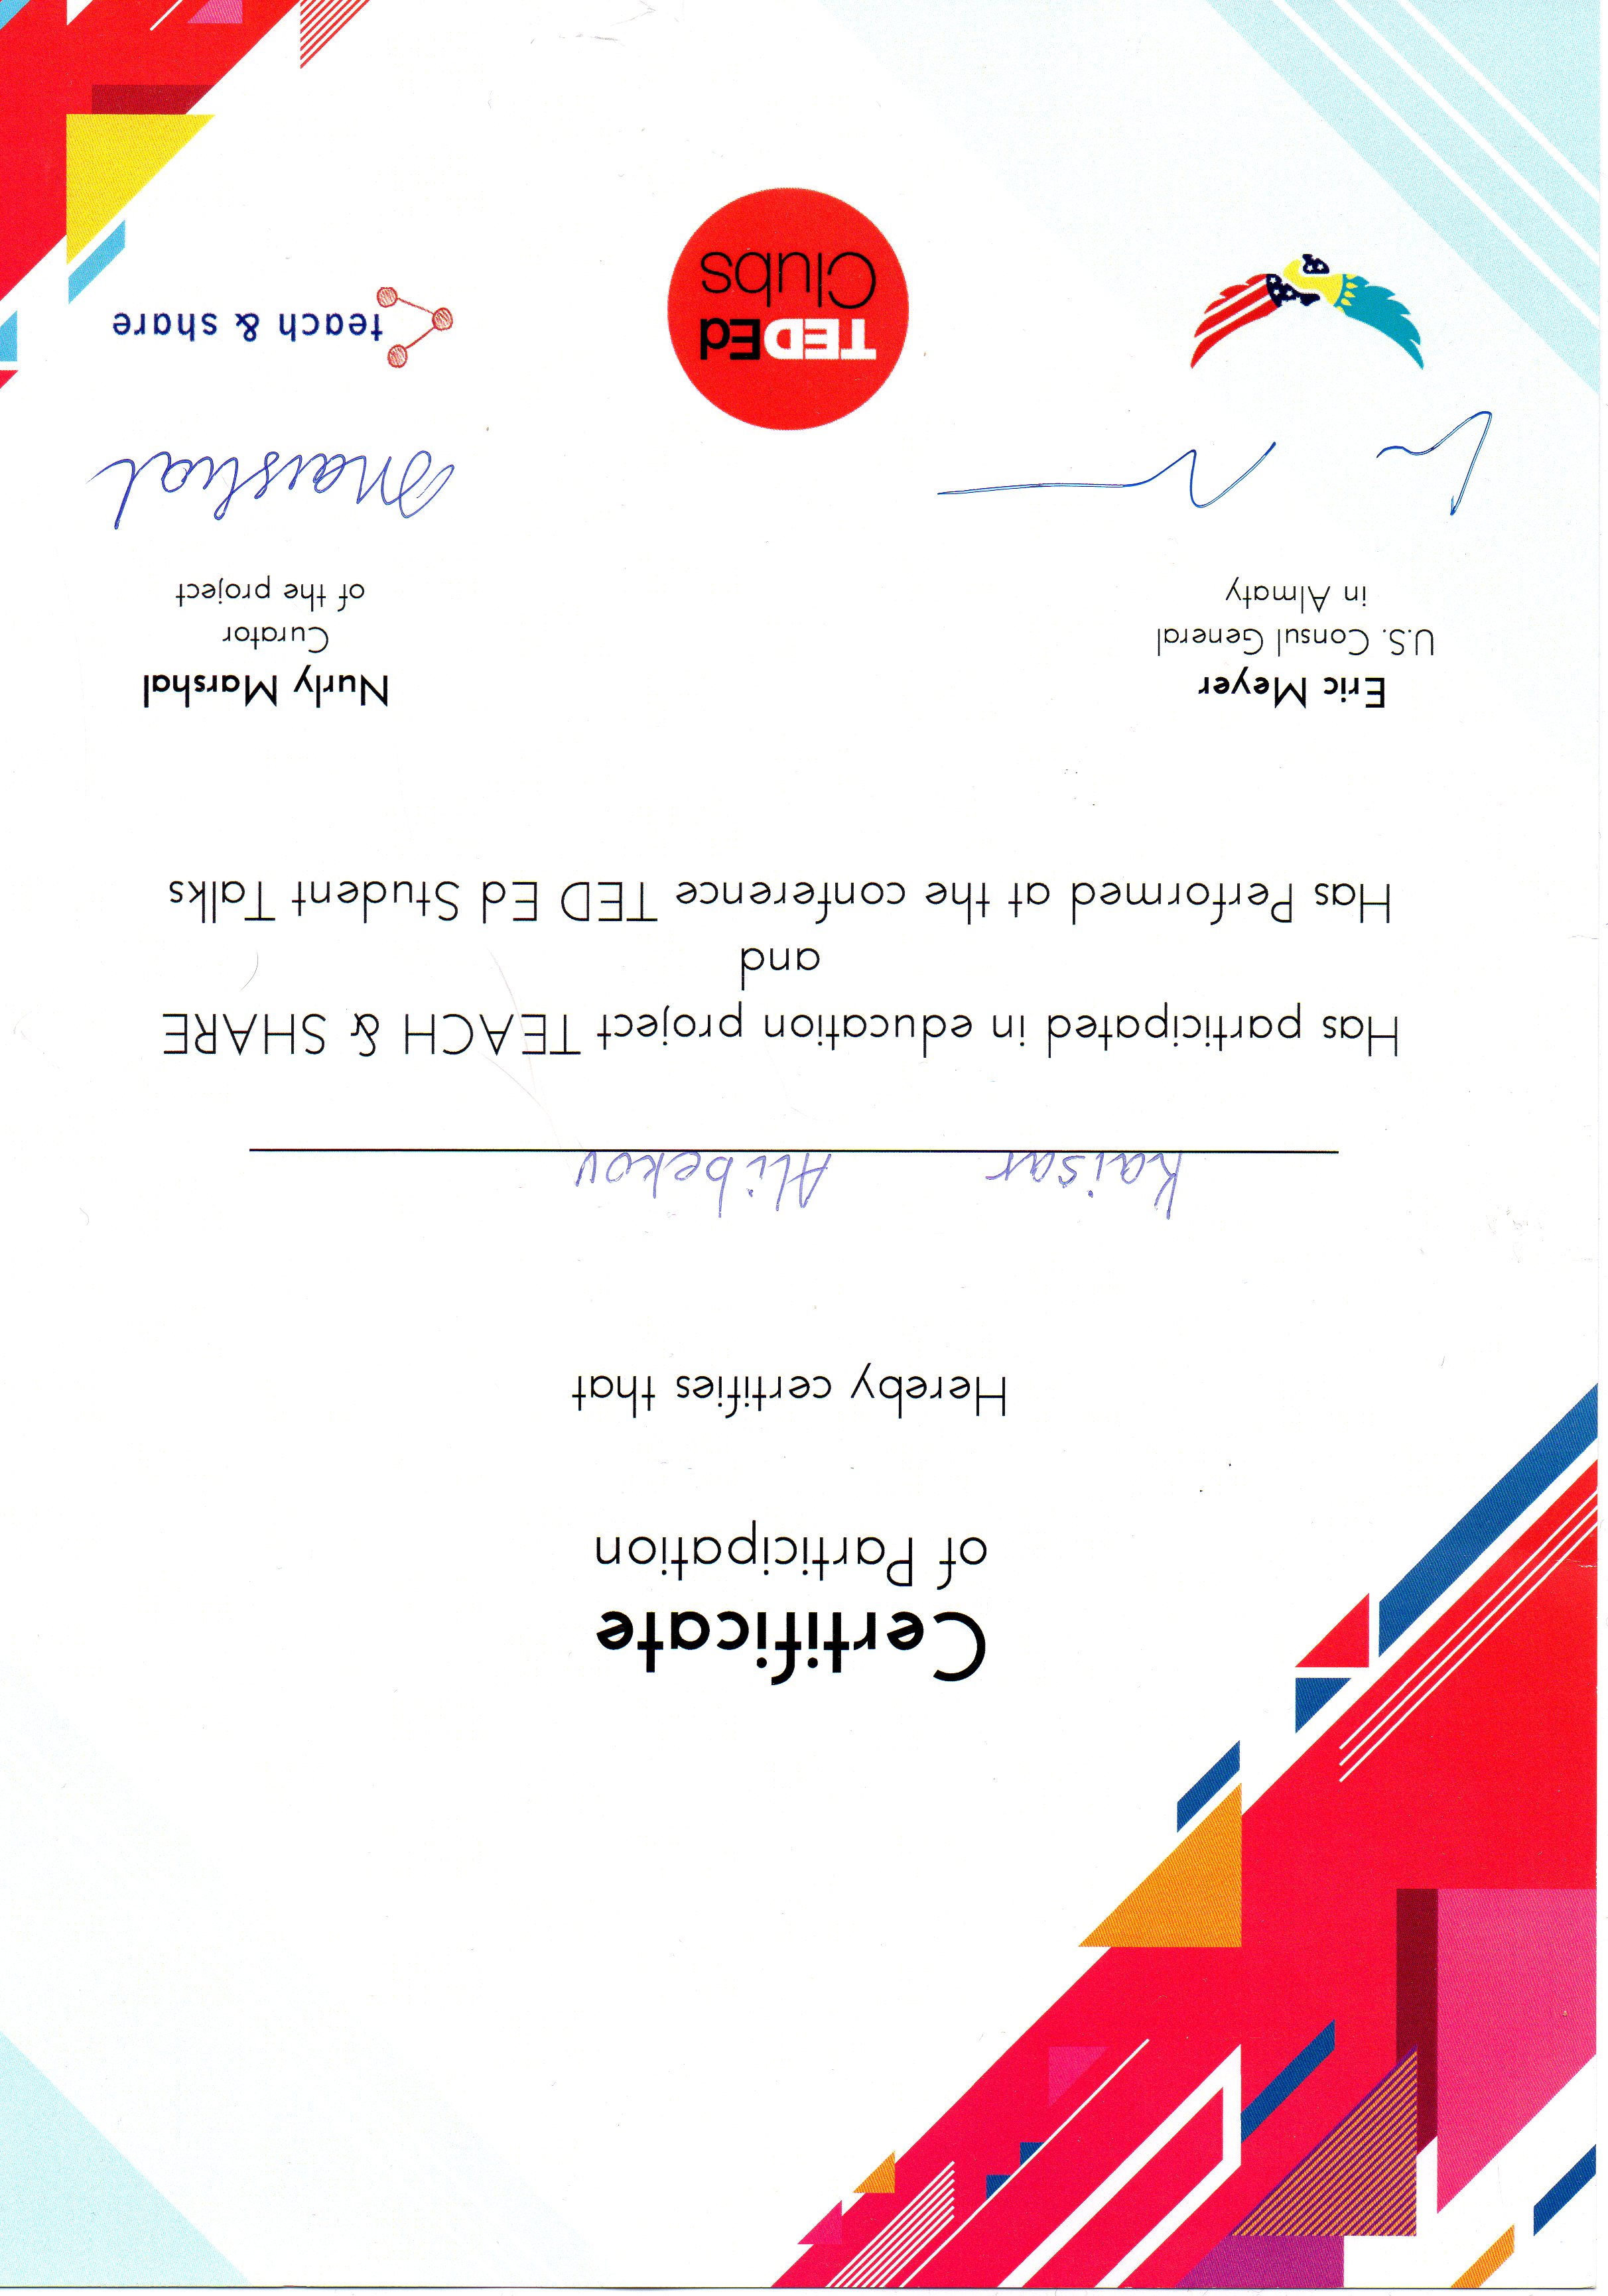 Certificate
of Participation
Hereby certifies that
Kaisar Alibekov
Has participated in education project TEACH & SHARE
and
Has Performed at the conference TED Ed Student Talks
Eric Meyer
U.S. Consul General
in Almaty
Nurly Marshal
Curator
of the project
Marshal
TEDEd
Clubs
teach & share